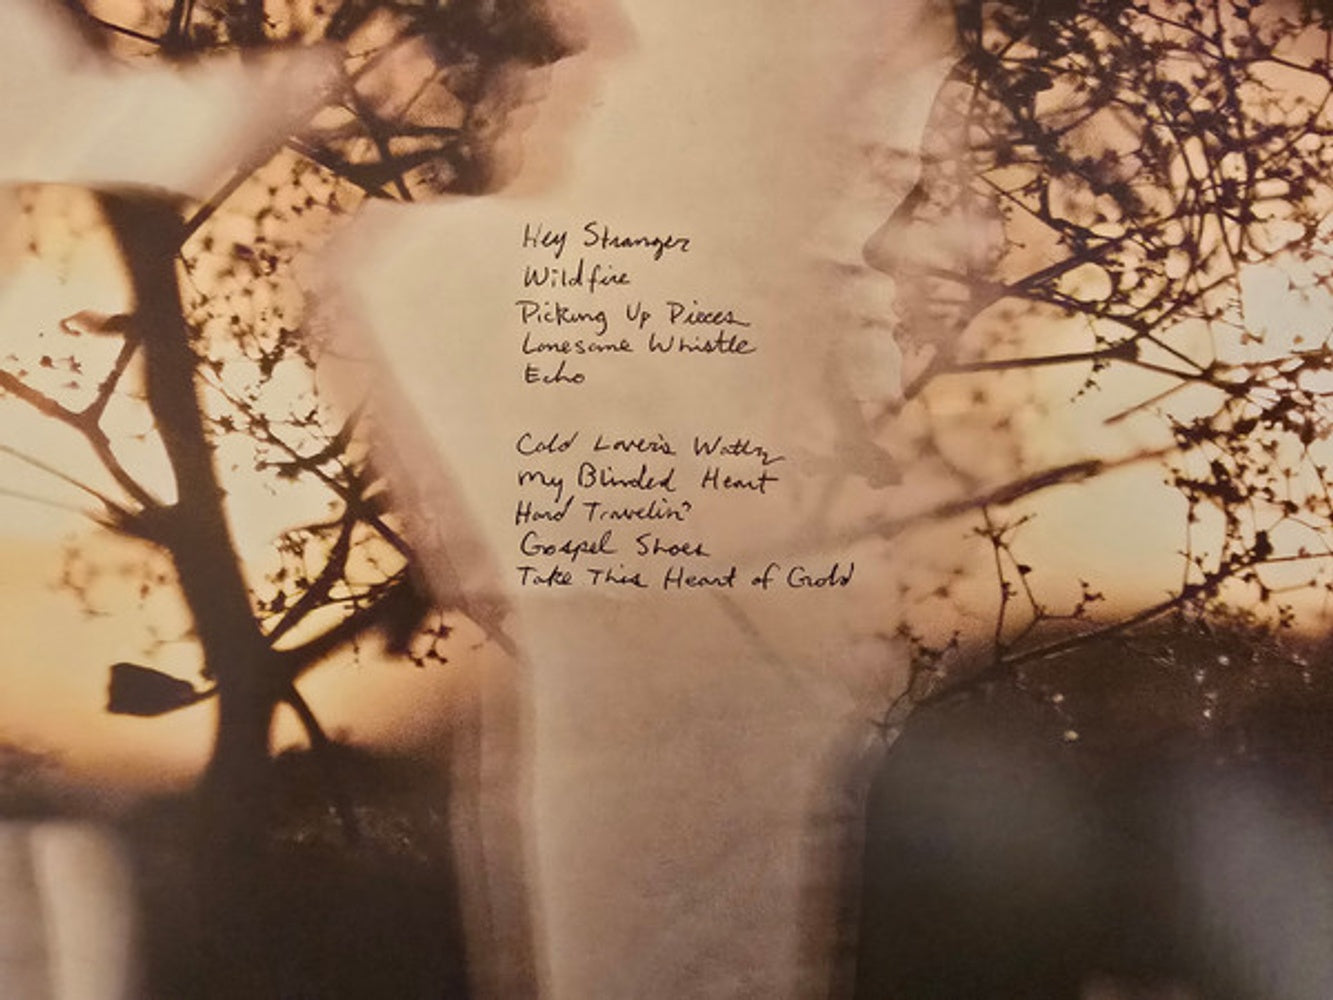 Hey Stranger
Wildfire
Picking Up Pieces
Lonesome Whistle
Echo
Cold Lover's Waltz
My Blinded Heart
Hard Travelin'
Gospel Shoes
Take This Heart of Gold